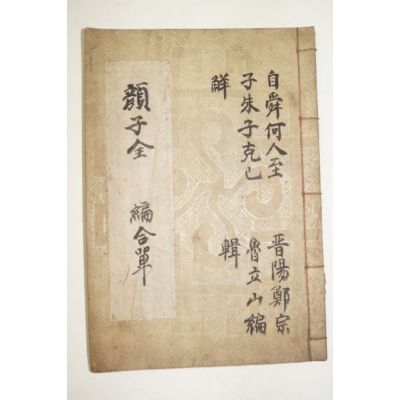 自舜何人至
子朱子克己
觧
晋陽鄭宗
魯立山編
輯
顔子全 編合單